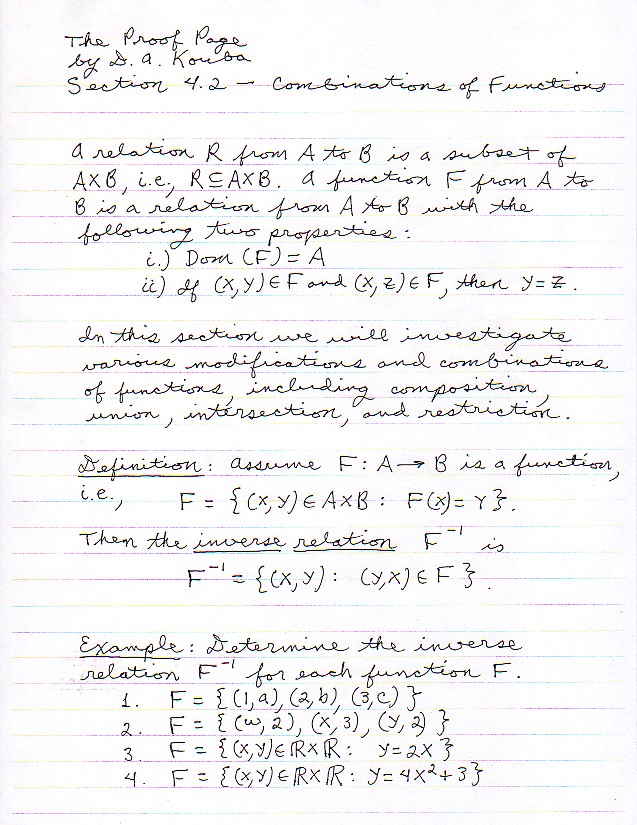 The Proof Page
by D. A. Kouba
Section 4.2 - Combinations of Functions
A relation R from A to B is a subset of
A×B, i.e., R⊆A×B. A function F from A to
B is a relation from A to B with the
following two properties :
i.) Dom (F) = A
ii) If (x,y)∈F and (x,z)∈F, then y=z.
In this section we will investigate
various modifications and combinations
of functions, including composition,
union, intersection, and restriction.
Definition : Assume F: A→B is a function,
i.e., F = {(x,y)∈A×B : F(x)=y}.
Then the inverse relation F⁻¹ is
F⁻¹ = {(x,y) : (y,x)∈F}.
Example : Determine the inverse
relation F⁻¹ for each function F.
1. F = {(1,a), (2,b), (3,c)}
2. F = {(w,2), (x,3), (y,2)}
3. F = {(x,y)∈ℝ×ℝ : y=2x}
4. F = {(x,y)∈ℝ×ℝ : y=4x²+3}